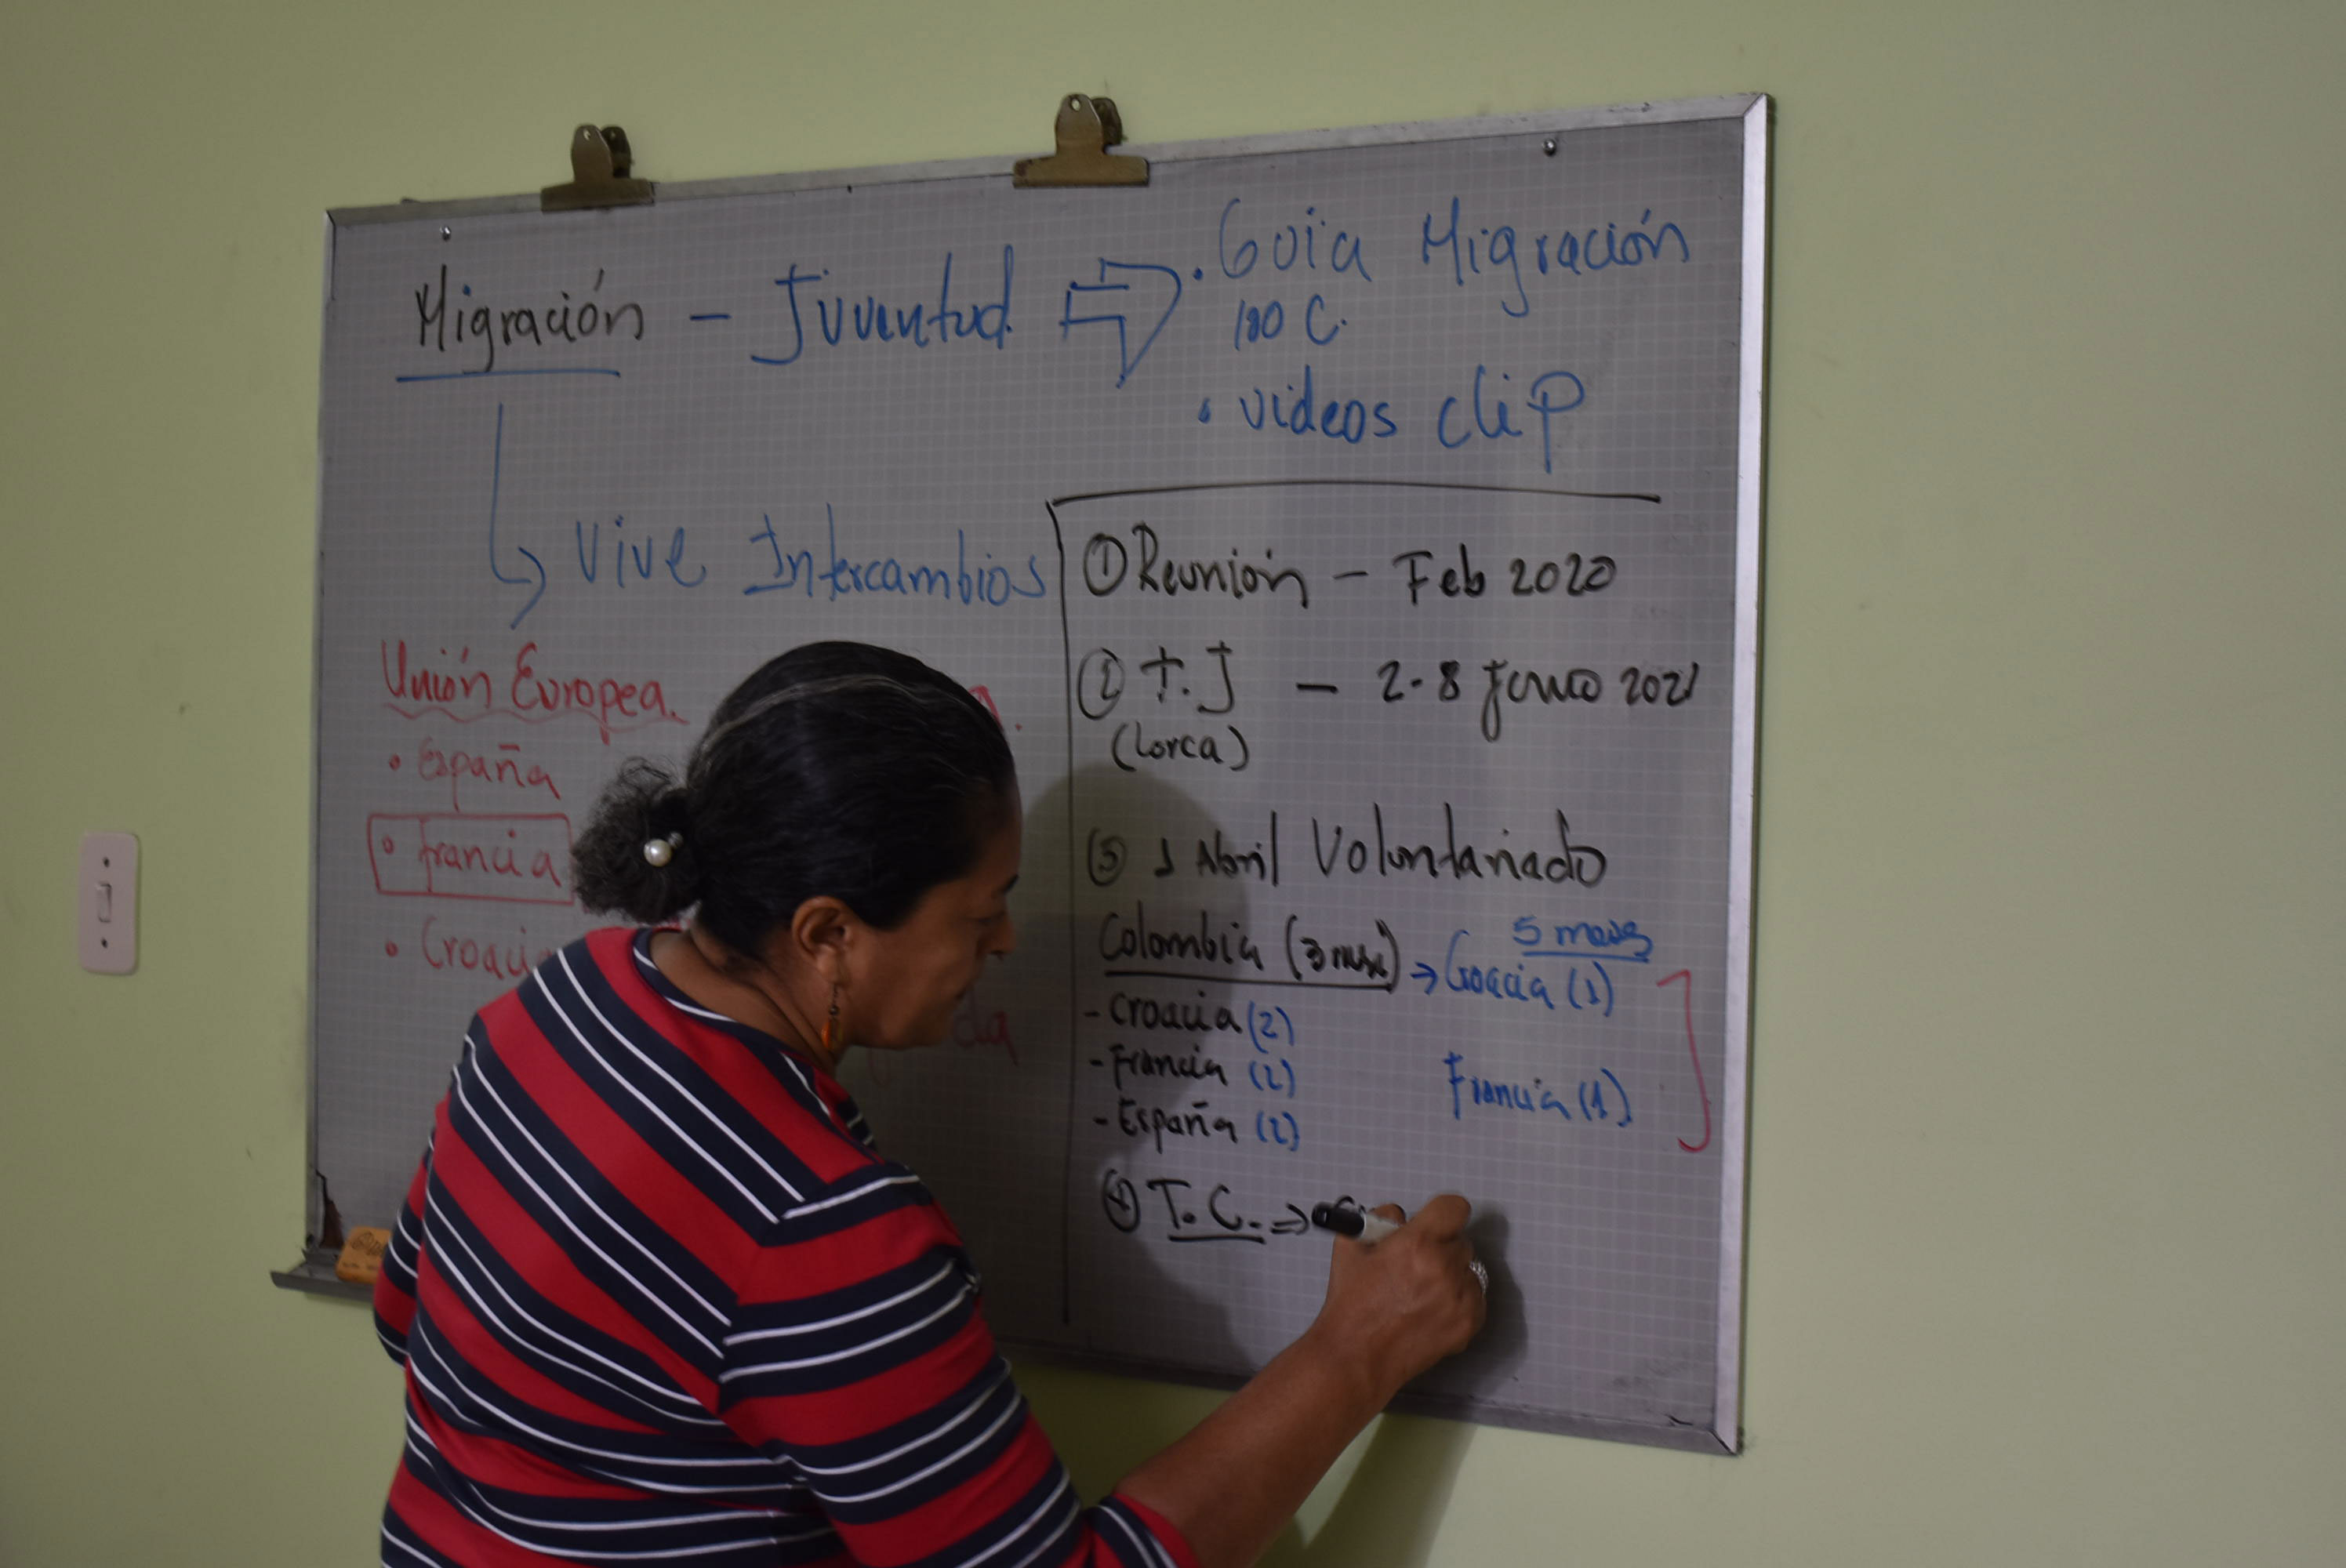 Migración - Juventud
• Guia Migración
100 C.
• videos clip
Vive Intercambios
Unión Europea.
• España
• francia
• Croacia
① Reunión - Feb 2020
② T.J - 2-8 Junio 2021
(Lorca)
③ 1 Abril Voluntariado
Colombia (3 mes) → Croacia (1)
5 meses
- Croacia (2)
- Francia (2)
Francia (1)
- España (2)
④ T. C. ⇒